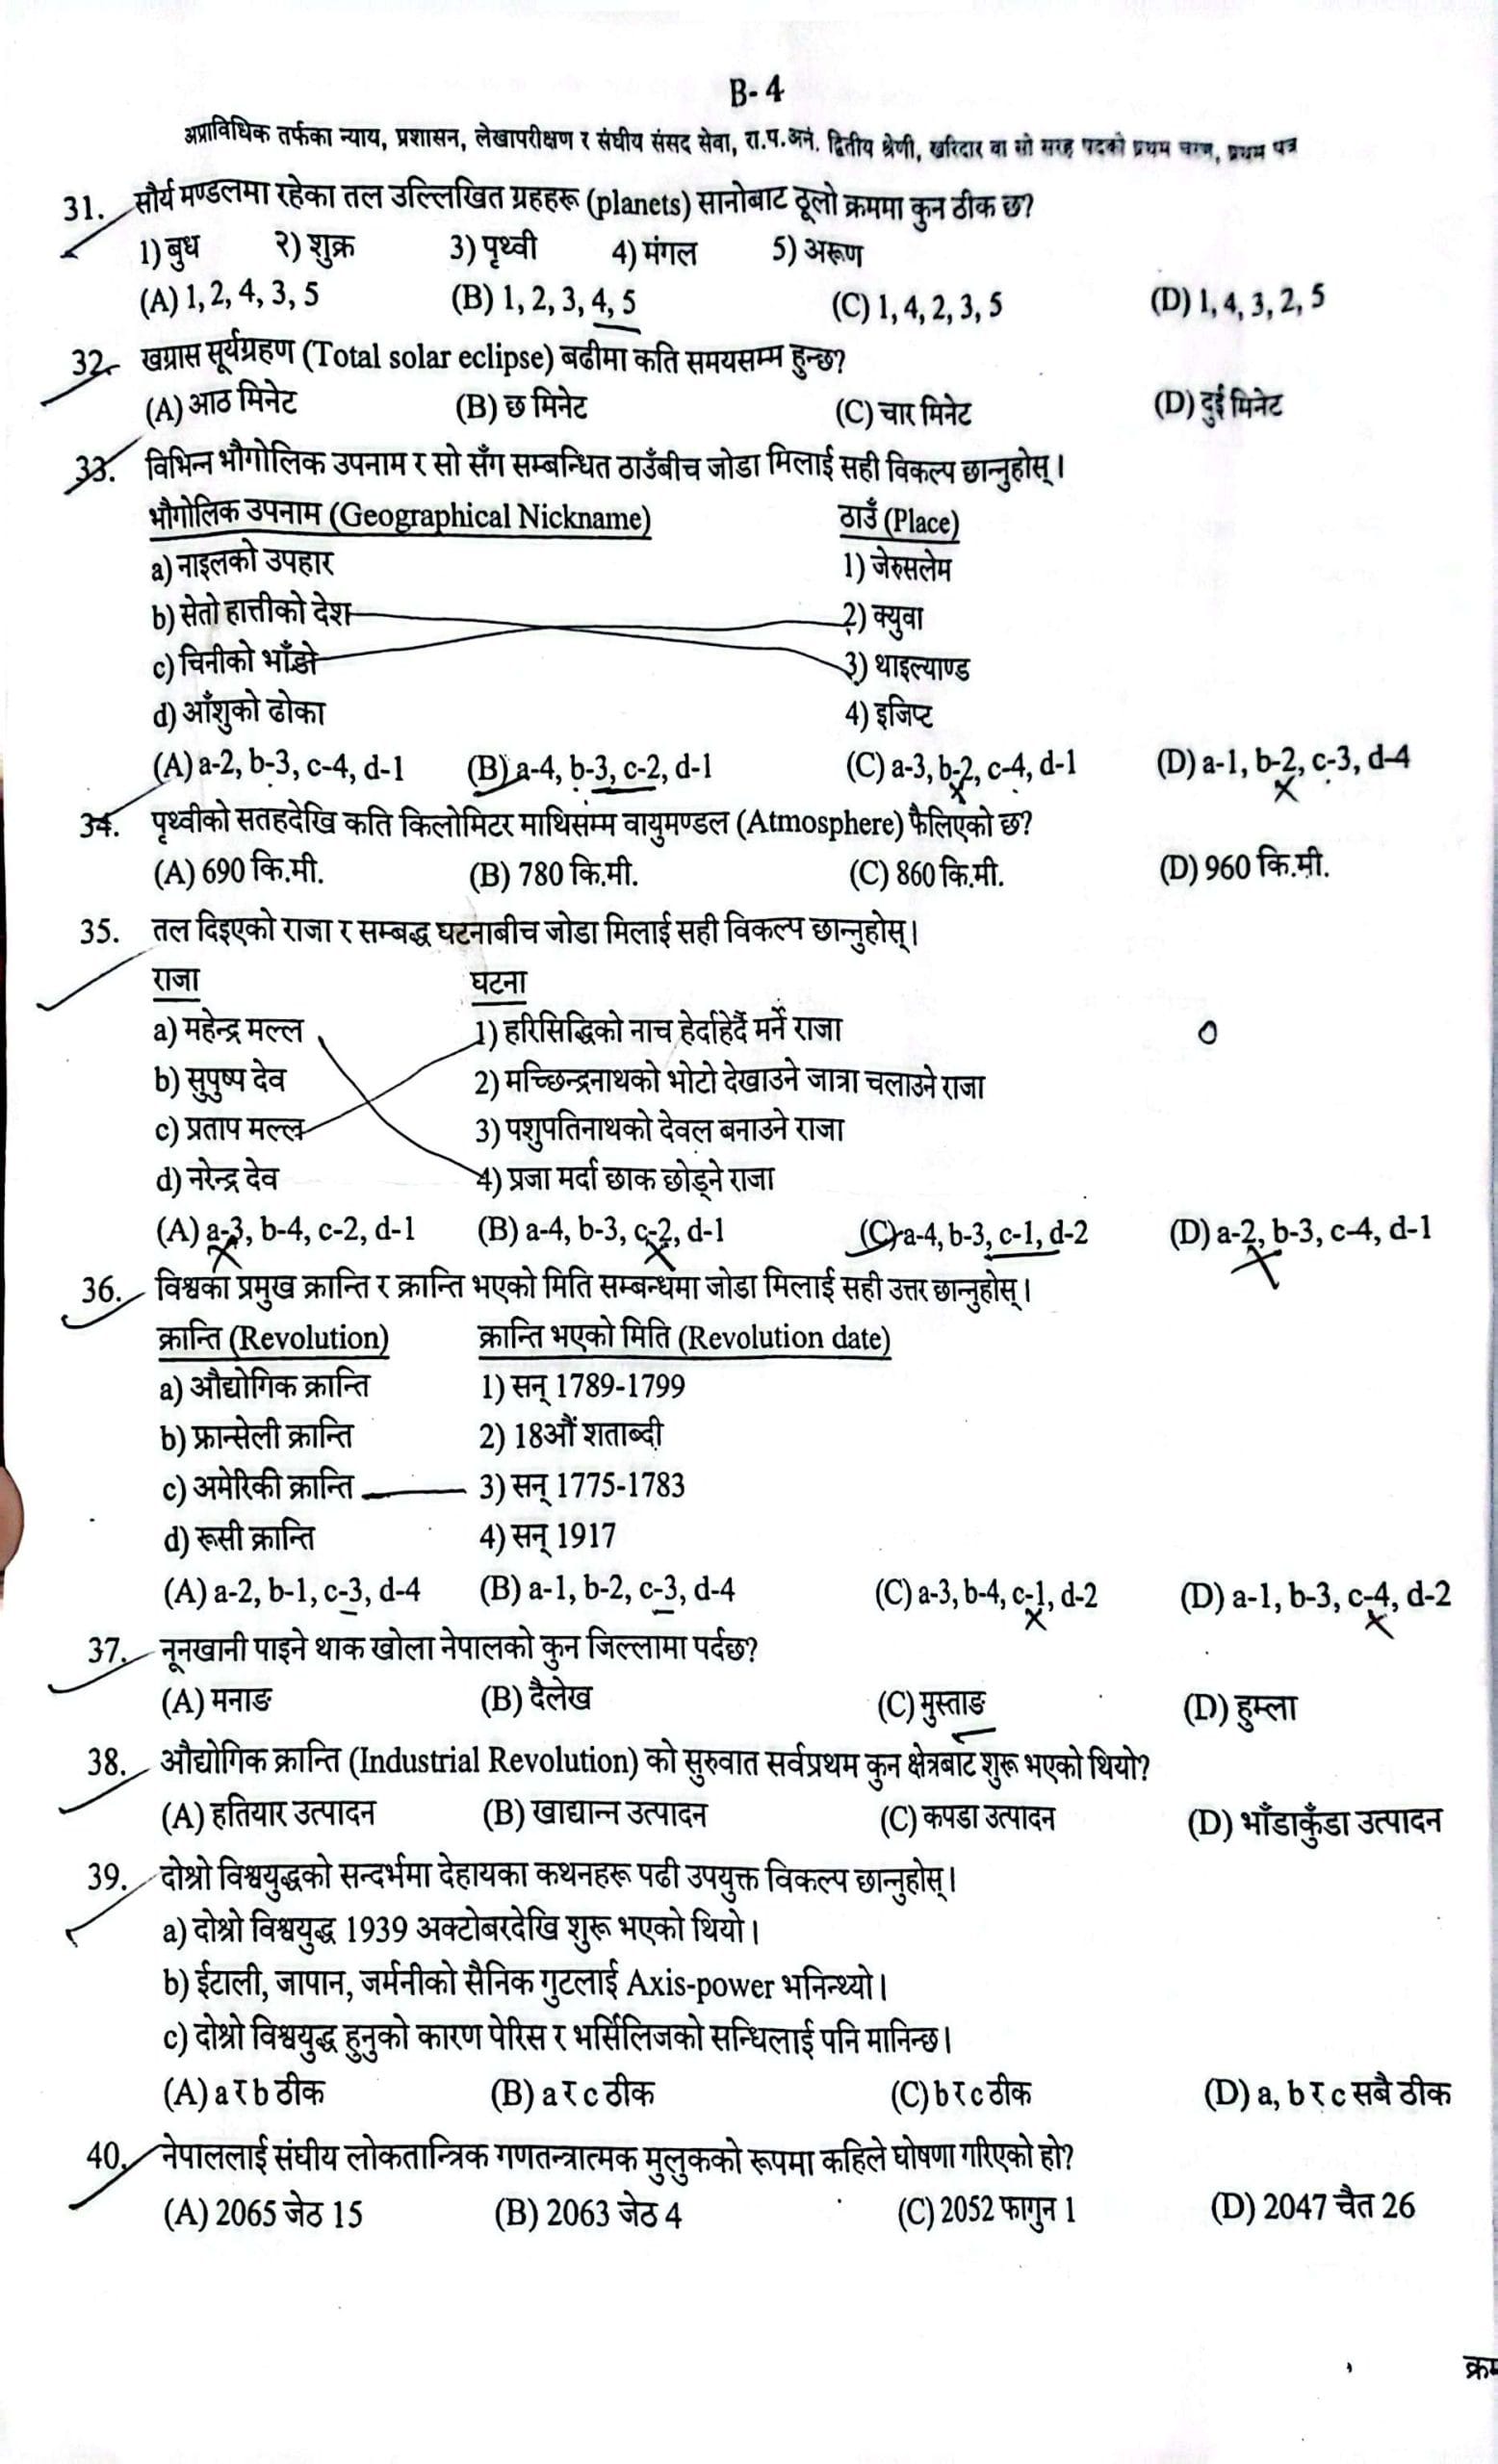 B-4
अप्राविधिक तर्फका न्याय, प्रशासन, लेखापरीक्षण र संघीय संसद सेवा, रा.प.अनं. द्वितीय श्रेणी, खरिदार वा सो सरह पदको प्रथम चरण, प्रथम पत्र
31. सौर्य मण्डलमा रहेका तल उल्लिखित ग्रहहरू (planets) सानोबाट ठूलो क्रममा कुन ठीक छ?
1) बुध २) शुक्र 3) पृथ्वी 4) मंगल 5) अरूण
(A) 1, 2, 4, 3, 5 (B) 1, 2, 3, 4, 5 (C) 1, 4, 2, 3, 5 (D) 1, 4, 3, 2, 5
32. खग्रास सूर्यग्रहण (Total solar eclipse) बढीमा कति समयसम्म हुन्छ?
(A) आठ मिनेट (B) छ मिनेट (C) चार मिनेट (D) दुई मिनेट
33. विभिन्न भौगोलिक उपनाम र सो सँग सम्बन्धित ठाउँबीच जोडा मिलाई सही विकल्प छान्नुहोस्।
भौगोलिक उपनाम (Geographical Nickname) ठाउँ (Place)
a) नाइलको उपहार 1) जेरुसलेम
b) सेतो हात्तीको देश 2) क्युवा
c) चिनीको भाँडो 3) थाइल्याण्ड
d) आँशुको ढोका 4) इजिप्ट
(A) a-2, b-3, c-4, d-1 (B) a-4, b-3, c-2, d-1 (C) a-3, b-2, c-4, d-1 (D) a-1, b-2, c-3, d-4
34. पृथ्वीको सतहदेखि कति किलोमिटर माथिसम्म वायुमण्डल (Atmosphere) फैलिएको छ?
(A) 690 कि.मी. (B) 780 कि.मी. (C) 860 कि.मी. (D) 960 कि.मी.
35. तल दिइएको राजा र सम्बद्ध घटनाबीच जोडा मिलाई सही विकल्प छान्नुहोस्।
राजा घटना
a) महेन्द्र मल्ल 1) हरिसिद्धिको नाच हेर्दाहेर्दै मर्ने राजा
b) सुपुष्प देव 2) मच्छिन्द्रनाथको भोटो देखाउने जात्रा चलाउने राजा
c) प्रताप मल्ल 3) पशुपतिनाथको देवल बनाउने राजा
d) नरेन्द्र देव 4) प्रजा मर्दा छाक छोड्ने राजा
(A) a-3, b-4, c-2, d-1 (B) a-4, b-3, c-2, d-1 (C) a-4, b-3, c-1, d-2 (D) a-2, b-3, c-4, d-1
36. विश्वका प्रमुख क्रान्ति र क्रान्ति भएको मिति सम्बन्धमा जोडा मिलाई सही उत्तर छान्नुहोस्।
क्रान्ति (Revolution) क्रान्ति भएको मिति (Revolution date)
a) औद्योगिक क्रान्ति 1) सन् 1789-1799
b) फ्रान्सेली क्रान्ति 2) 18औं शताब्दी
c) अमेरिकी क्रान्ति 3) सन् 1775-1783
d) रूसी क्रान्ति 4) सन् 1917
(A) a-2, b-1, c-3, d-4 (B) a-1, b-2, c-3, d-4 (C) a-3, b-4, c-1, d-2 (D) a-1, b-3, c-4, d-2
37. नूनखानी पाइने थाक खोला नेपालको कुन जिल्लामा पर्दछ?
(A) मनाङ (B) दैलेख (C) मुस्ताङ (D) हुम्ला
38. औद्योगिक क्रान्ति (Industrial Revolution) को सुरुवात सर्वप्रथम कुन क्षेत्रबाट शुरू भएको थियो?
(A) हतियार उत्पादन (B) खाद्यान्न उत्पादन (C) कपडा उत्पादन (D) भाँडाकुँडा उत्पादन
39. दोश्रो विश्वयुद्धको सन्दर्भमा देहायका कथनहरू पढी उपयुक्त विकल्प छान्नुहोस्।
a) दोश्रो विश्वयुद्ध 1939 अक्टोबरदेखि शुरू भएको थियो।
b) ईटाली, जापान, जर्मनीको सैनिक गुटलाई Axis-power भनिन्थ्यो।
c) दोश्रो विश्वयुद्ध हुनुको कारण पेरिस र भर्सिलिजको सन्धिलाई पनि मानिन्छ।
(A) a र b ठीक (B) a र c ठीक (C) b र c ठीक (D) a, b र c सबै ठीक
40. नेपाललाई संघीय लोकतान्त्रिक गणतन्त्रात्मक मुलुकको रूपमा कहिले घोषणा गरिएको हो?
(A) 2065 जेठ 15 (B) 2063 जेठ 4 (C) 2052 फागुन 1 (D) 2047 चैत 26